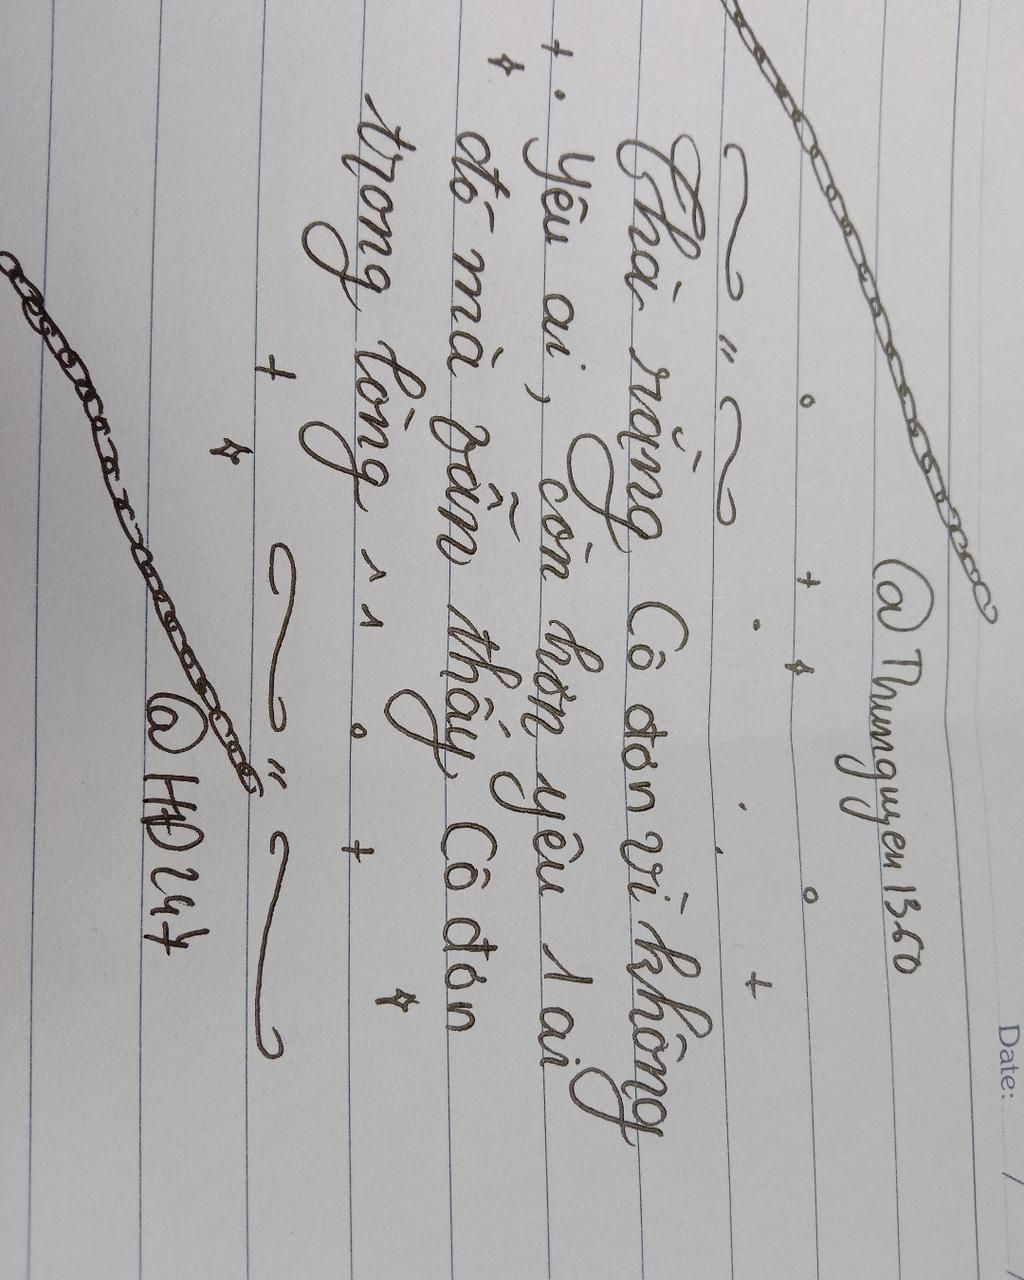 Date: / /
@Thumquyen1360
Thà rằng Cô đơn vì không
yêu ai, còn hơn yêu 1 ai
đó mà vẫn thấy Cô đơn
trong lòng
@HĐ247